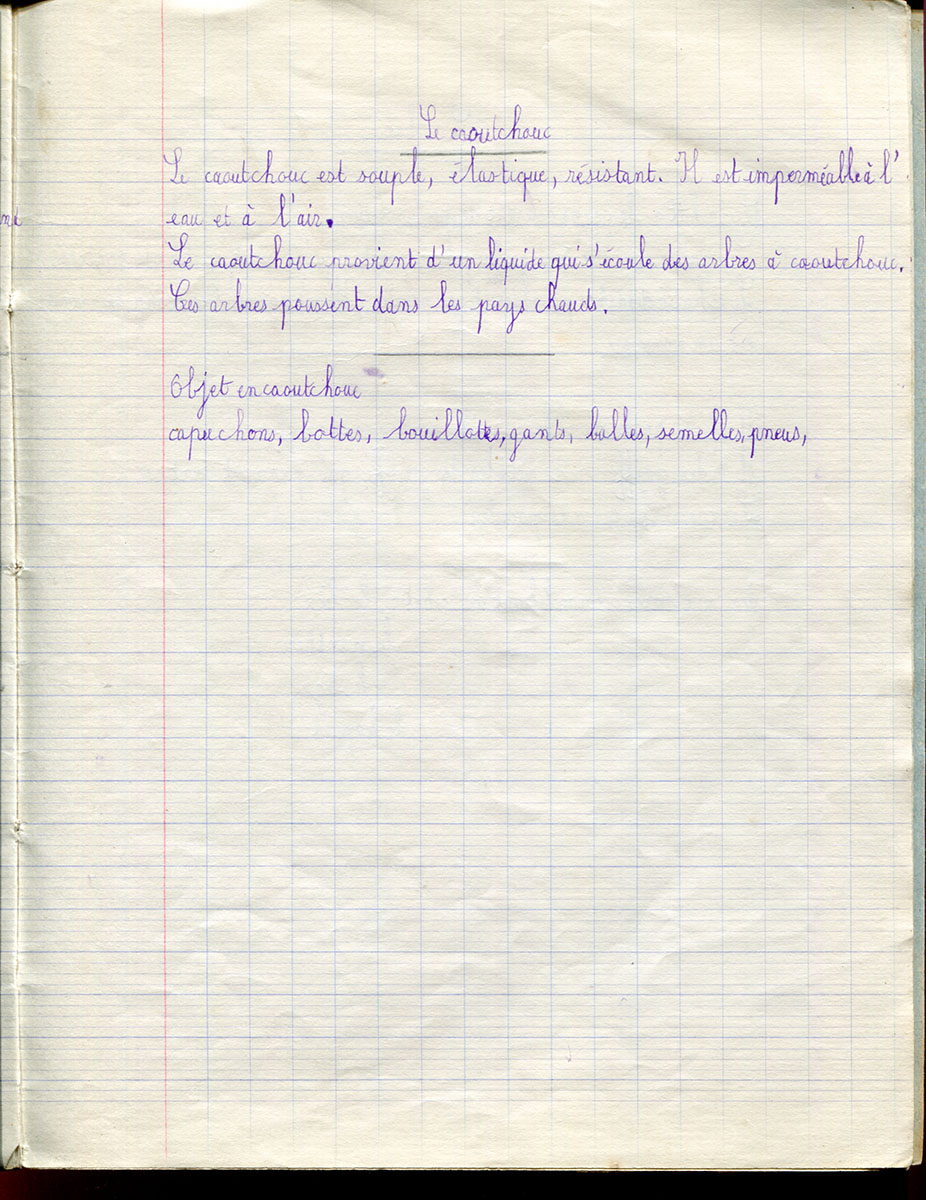 Le caoutchouc
Le caoutchouc est souple, élastique, résistant. Il est imperméable à l'
eau et à l'air.
Le caoutchouc provient d'un liquide qui s'écoule des arbres à caoutchouc.
Ces arbres poussent dans les pays chauds.
Objet en caoutchouc
capuchons, bottes, bouillottes, gants, balles, semelles, pneus,